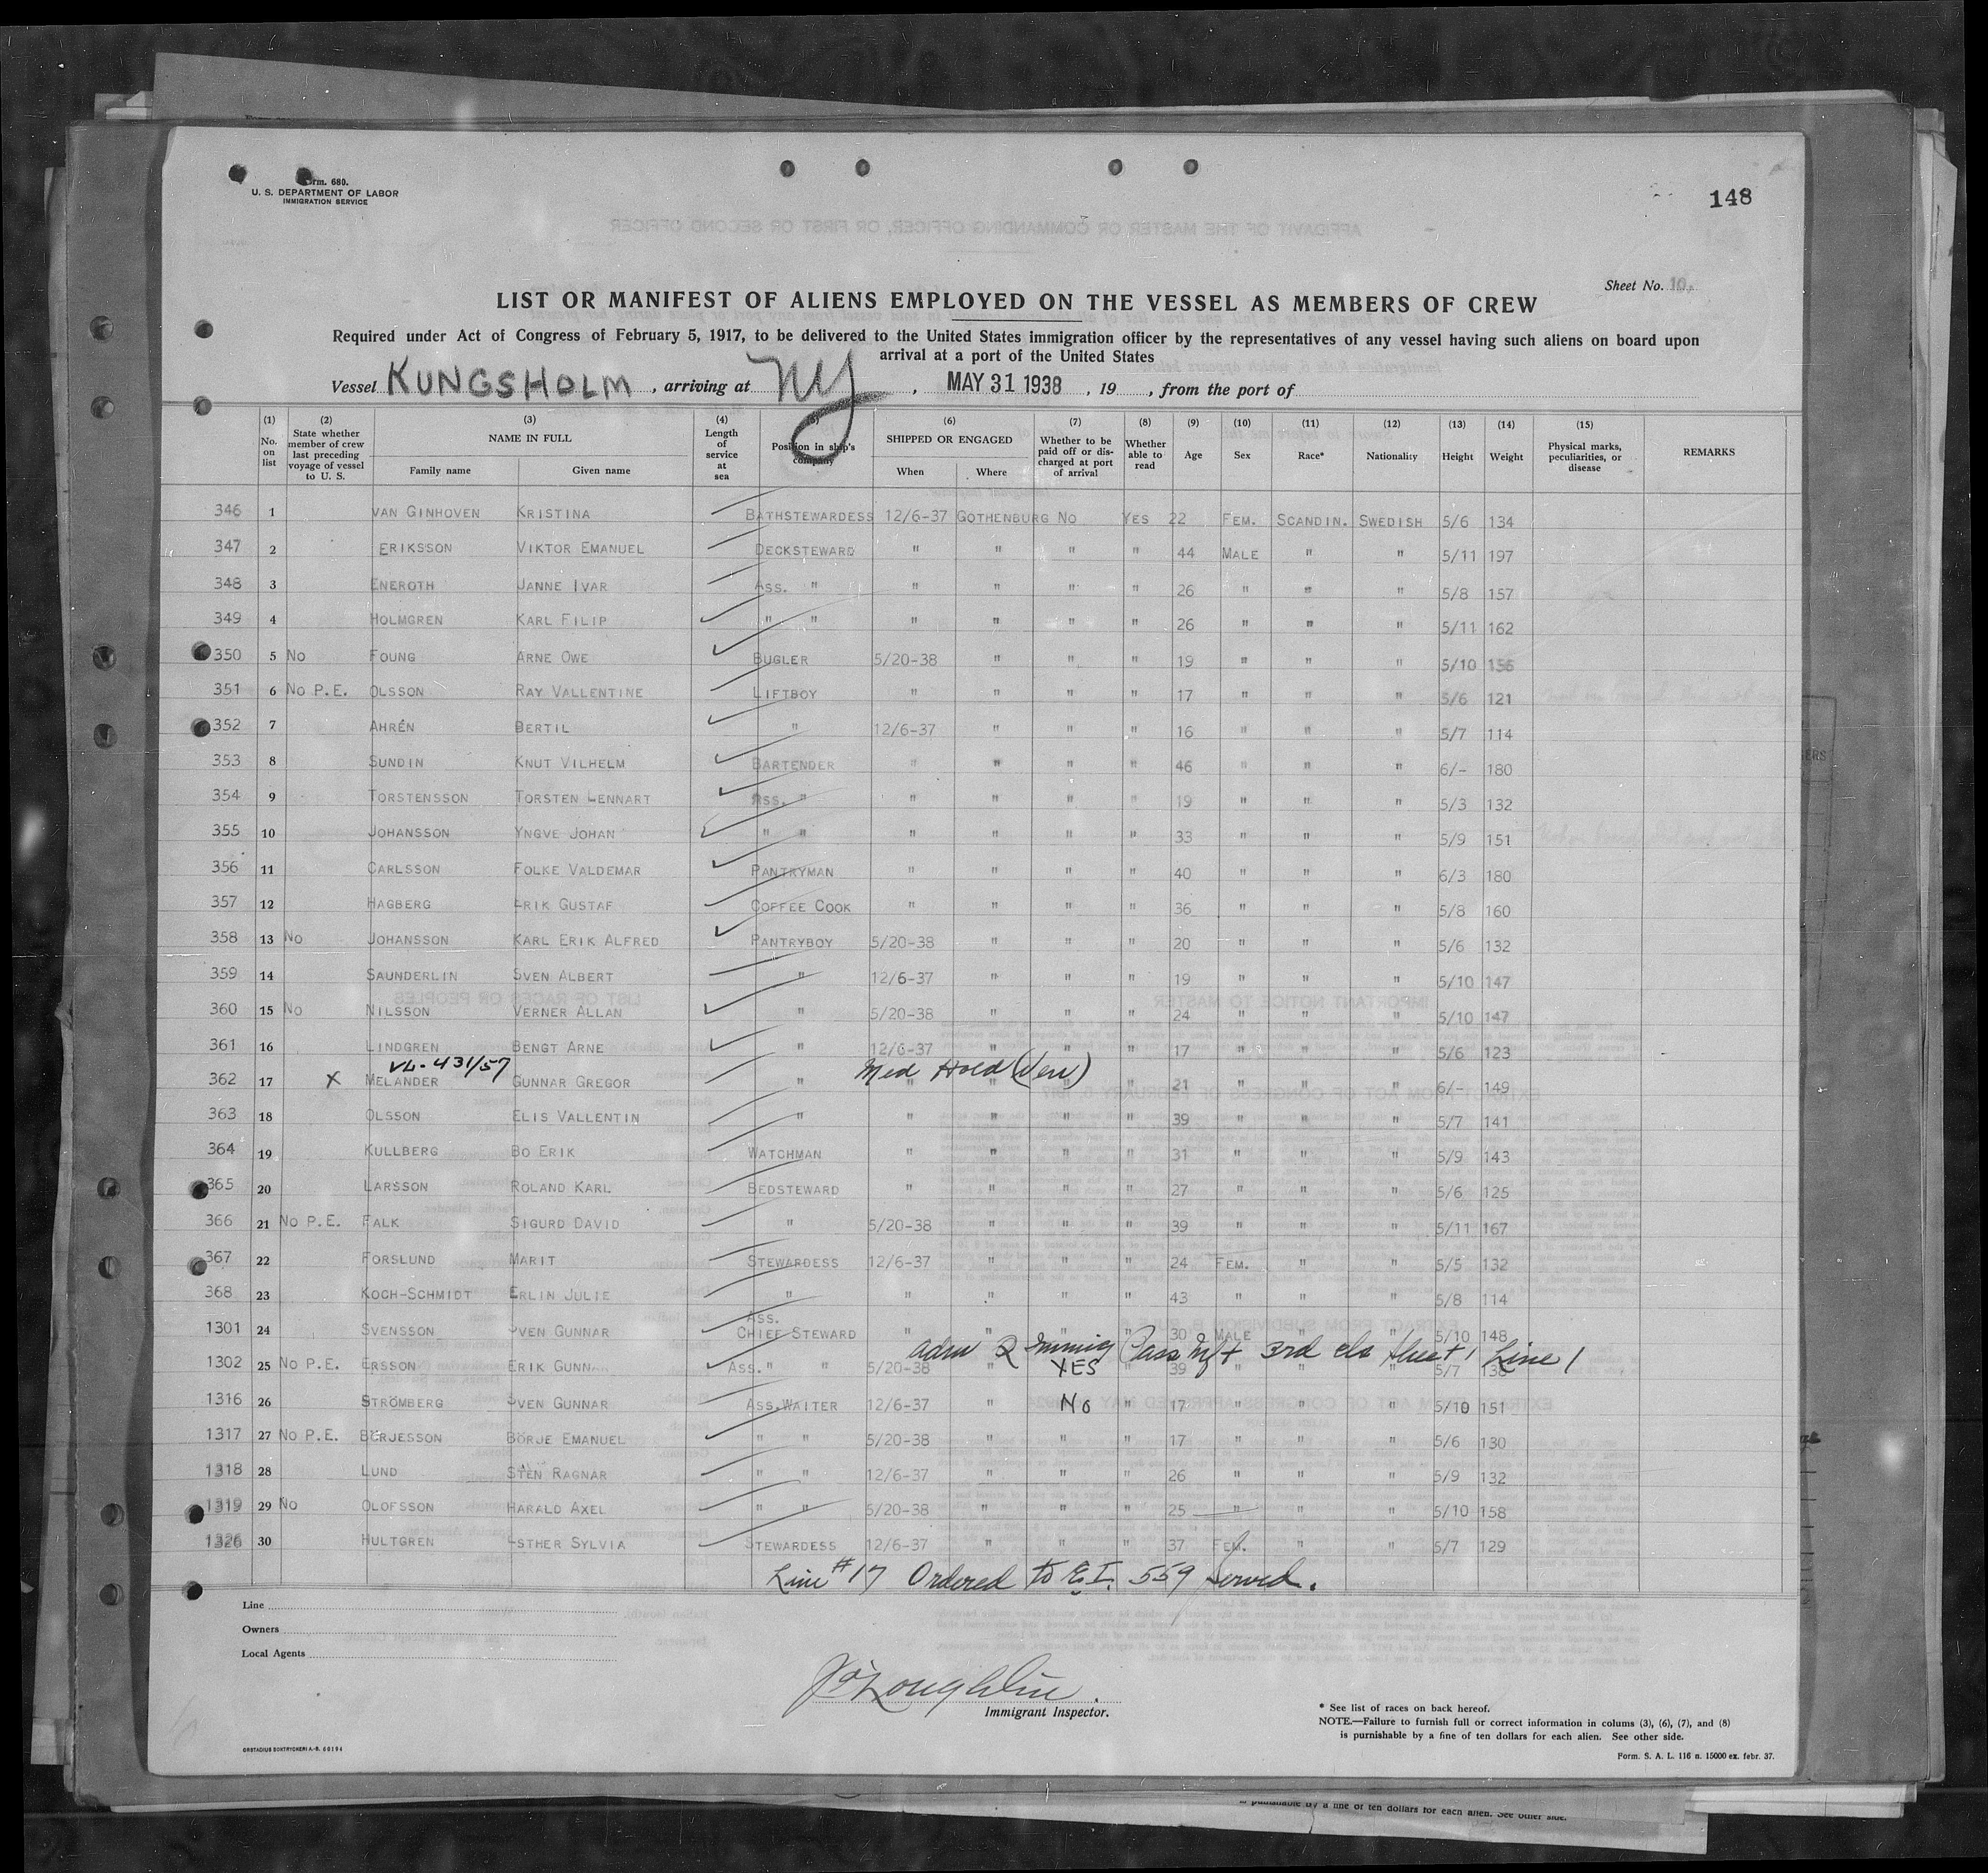 Form. 680.
U. S. DEPARTMENT OF LABOR
IMMIGRATION SERVICE
148
Sheet No. 10.
LIST OR MANIFEST OF ALIENS EMPLOYED ON THE VESSEL AS MEMBERS OF CREW
Required under Act of Congress of February 5, 1917, to be delivered to the United States immigration officer by the representatives of any vessel having such aliens on board upon
arrival at a port of the United States
Vessel KUNGSHOLM, arriving at NY, MAY 31 1938, 19, from the port of
(1) No. on list (2) State whether member of crew last preceding voyage of vessel to U. S. (3) NAME IN FULL Family name Given name (4) Length of service at sea (5) Position in ship's company (6) SHIPPED OR ENGAGED When Where (7) Whether to be paid off or discharged at port of arrival (8) Whether able to read (9) Age (10) Sex (11) Race* (12) Nationality (13) Height (14) Weight (15) Physical marks, peculiarities, or disease REMARKS
346 1 VAN GINHOVEN KRISTINA BATHSTEWARDESS 12/6-37 GOTHENBURG NO YES 22 FEM. SCANDIN. SWEDISH 5/6 134
347 2 ERIKSSON VIKTOR EMANUEL DECKSTEWARD " " " " 44 MALE " " 5/11 197
348 3 ENEROTH JANNE IVAR ASS. " " " " " 26 " " " 5/8 157
349 4 HOLMGREN KARL FILIP " " " " " " 26 " " " 5/11 162
350 5 NO FOUNG ARNE OWE BUGLER 5/20-38 " " " 19 " " " 5/10 155
351 6 NO P.E. OLSSON RAY VALLENTINE LIFTBOY " " " " 17 " " " 5/6 121
352 7 AHRÉN BERTIL " 12/6-37 " " " 16 " " " 5/7 114
353 8 SUNDIN KNUT VILHELM BARTENDER " " " " 46 " " " 6/- 180
354 9 TORSTENSSON TORSTEN LENNART ASS. " " " " " 19 " " " 5/3 132
355 10 JOHANSSON YNGVE JOHAN " " " " " " 33 " " " 5/9 151
356 11 CARLSSON FOLKE VALDEMAR PANTRYMAN " " " " 40 " " " 6/3 180
357 12 HAGBERG ERIK GUSTAF COFFEE COOK " " " " 36 " " " 5/8 160
358 13 NO JOHANSSON KARL ERIK ALFRED PANTRYBOY 5/20-38 " " " 20 " " " 5/6 132
359 14 SAUNDERLIN SVEN ALBERT " 12/6-37 " " " 19 " " " 5/10 147
360 15 NO NILSSON VERNER ALLAN " 5/20-38 " " " 24 " " " 5/10 147
361 16 LINDGREN BENGT ARNE " 12/6-37 " " " 17 " " " 5/6 123
VL-431/57 Med Hold (Ven)
362 17 X MELANDER GUNNAR GREGOR " " " " " 21 " " " 6/- 149
363 18 OLSSON ELIS VALLENTIN " " " " " 39 " " " 5/7 141
364 19 KULLBERG BO ERIK WATCHMAN " " " " 31 " " " 5/9 143
365 20 LARSSON ROLAND KARL BEDSTEWARD " " " " 27 " " " 5/6 125
366 21 NO P.E. FALK SIGURD DAVID " 5/20-38 " " " 39 " " " 5/11 167
367 22 FORSLUND MARIT STEWARDESS 12/6-37 " " " 24 FEM. " " 5/5 132
368 23 KOCH-SCHMIDT ERLIN JULIE " " " " " 43 " " " 5/8 114
1301 24 SVENSSON SVEN GUNNAR ASS. CHIEF STEWARD " " " " 30 MALE " " 5/10 148
adm Immig Pass Mft 3rd cls sheet 1 Line 1
1302 25 NO P.E. ERSSON ERIK GUNN ASS. " " 5/20-38 " YES " 39 " " " 5/7 138
1316 26 STRÖMBERG SVEN GUNNAR ASS. WAITER 12/6-37 " No " 17 " " " 5/10 151
1317 27 NO P.E. BÖRJESSON BÖRJE EMANUEL " " 5/20-38 " " " 17 " " " 5/6 130
1318 28 LUND STEN RAGNAR " " 12/6-37 " " " 26 " " " 5/9 132
1319 29 NO OLOFSSON HARALD AXEL " " 5/20-38 " " " 25 " " " 5/10 158
1326 30 HULTGREN ESTHER SYLVIA STEWARDESS 12/6-37 " " " 37 FEM. " " 5/7 129
Line #17 Ordered to E.I. 559 served.
Line
Owners
Local Agents
J O'Loughlin.
Immigrant Inspector.
* See list of races on back hereof.
NOTE.—Failure to furnish full or correct information in colums (3), (6), (7), and (8)
is punishable by a fine of ten dollars for each alien. See other side.
ORSTADIUS BOKTRYCKERI A.-B. 60194
Form. S. A. L. 116 n. 15000 ex. febr. 37.
is punishable by a fine of ten dollars for each alien. See other side.